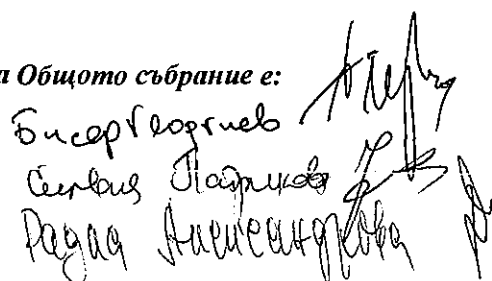 а Общото събрание е:
Бисер Георгиев
Силвия Патрикова
Радка Александрова